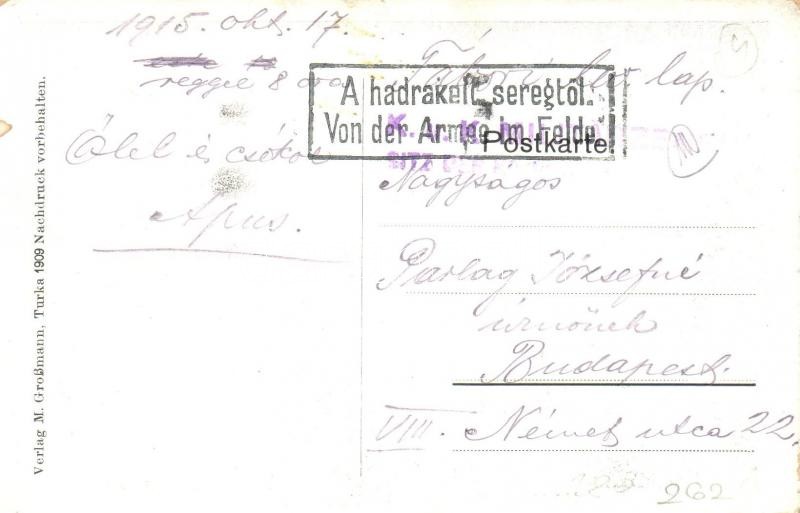 1915. okt. 17.
reggel 8 óra
Ölel és csókol
Apus.
Tábori lev. lap.
A hadrakelt seregtől.
Von der Armee im Felde.
Postkarte
Nagyságos
Parlag Józsefné
úrnőnek
Budapest.
VIII. Német utca 22.
Verlag M. Großmann, Turka 1909 Nachdruck vorbehalten.
10
262